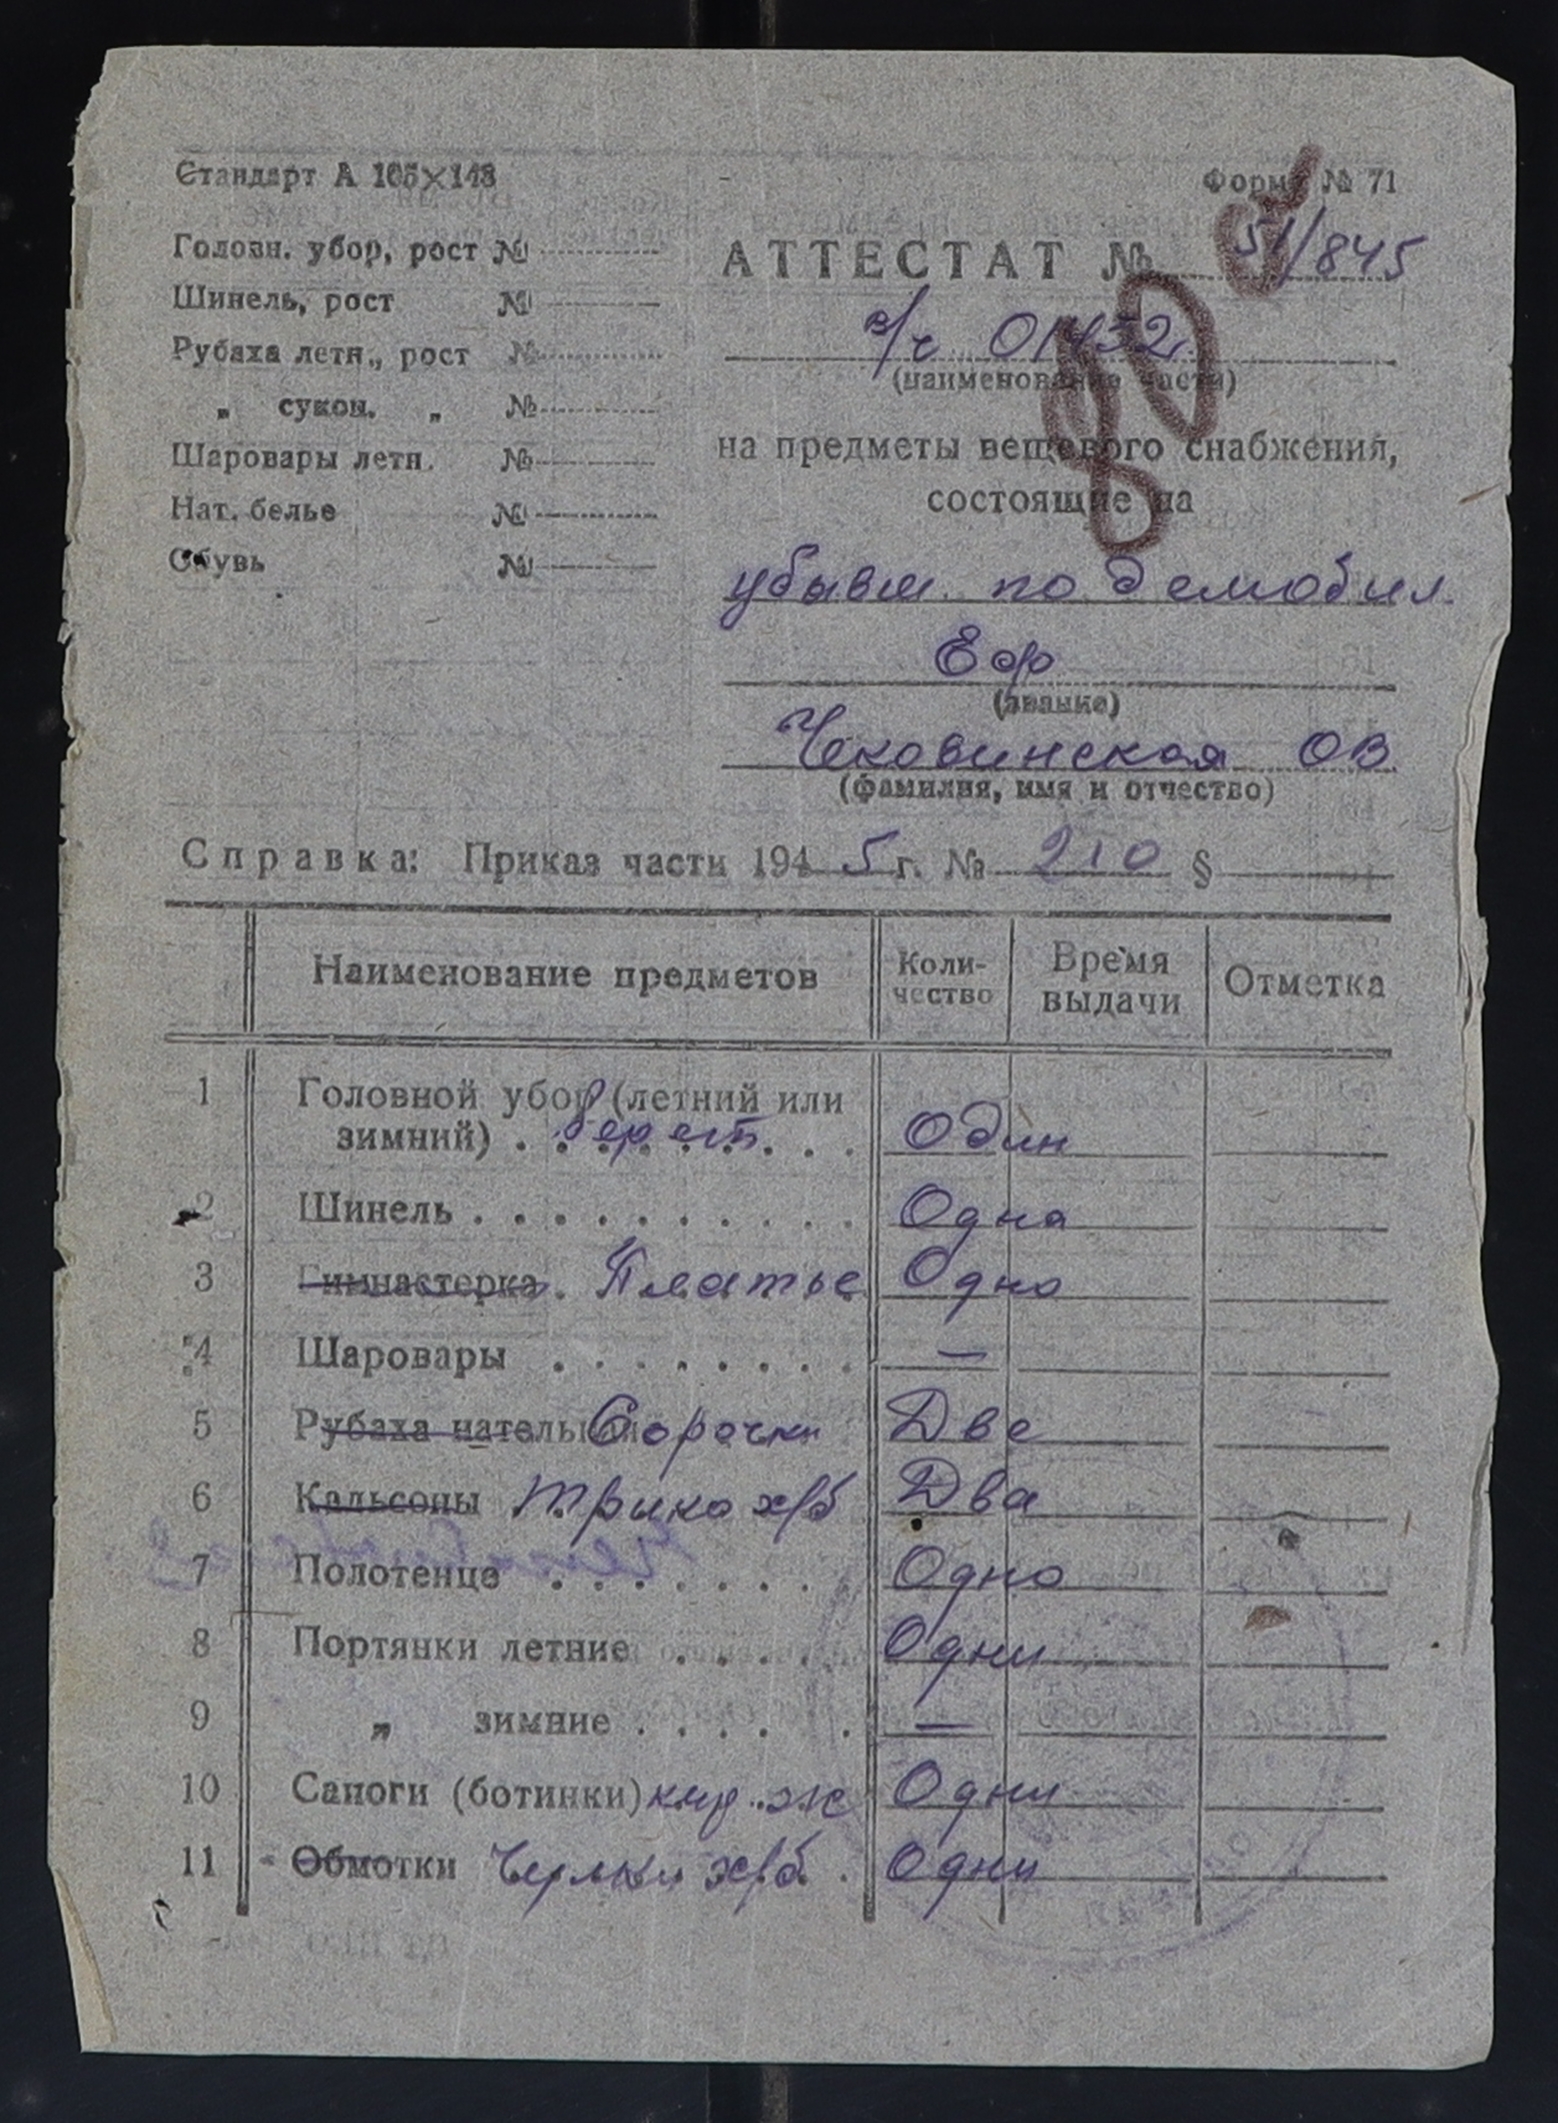 Стандарт А 105×148
Форма № 71
Головн. убор, рост №
Шинель, рост №
Рубаха летн., рост №
„ сукон. „ №
Шаровары летн. №
Нат. белье №
Обувь №
АТТЕСТАТ № 51/845
80
в/ч 01432
(наименование части)
на предметы вещевого снабжения,
состоящие на
убывш. по демобил.
Еф
(звание)
Чековинская ОВ
(фамилия, имя и отчество)
Справка: Приказ части 1945 г. № 210 §
Наименование предметов Коли-чество Время выдачи Отметка
1 Головной убор (летний или
зимний) . берет . . . Один
2 Шинель . . . . . . . . . . Одна
3 Гимнастерка . Платье Одно
4 Шаровары . . . . . . . . —
5 Рубаха нательная Сорочки Две
6 Кальсоны трико х/б Два
7 Полотенце . . . . . . . Одно
8 Портянки летние . . . . . Одни
9 „ зимние . . . . . —
10 Сапоги (ботинки) кир. ж Одни
11 Обмотки Чулки х/б . Одни